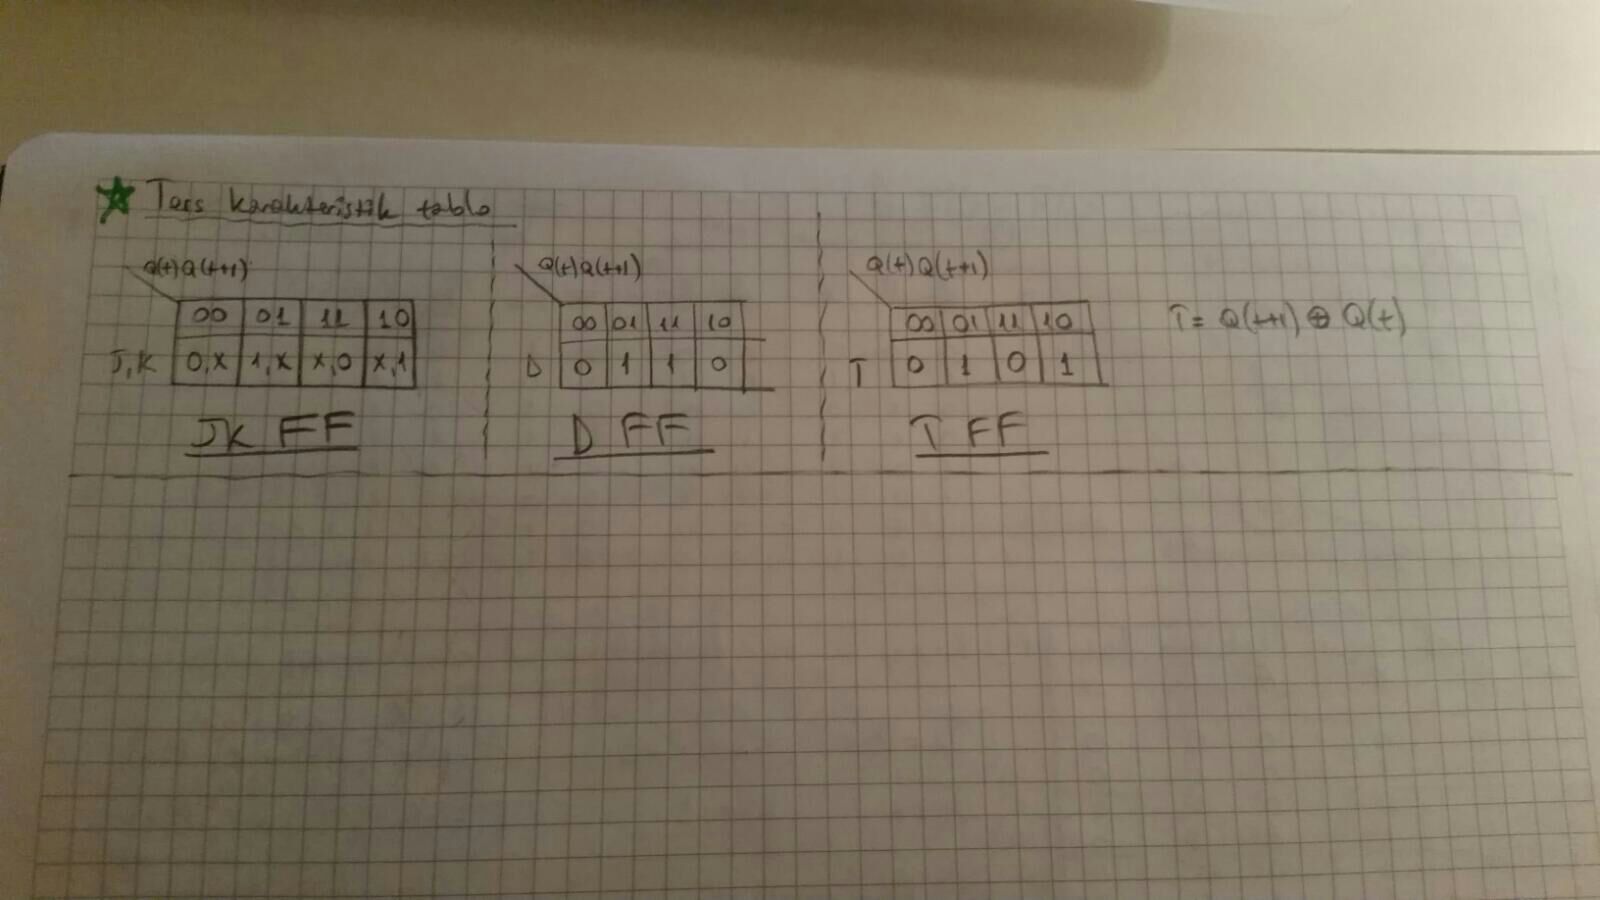 Ters karakteristik tablo
Q(t)Q(t+1)
00 01 11 10
J,K 0,x 1,x x,0 x,1
JK FF
Q(t)Q(t+1)
00 01 11 10
D 0 1 1 0
D FF
Q(t)Q(t+1)
00 01 11 10
T 0 1 0 1
T FF
T = Q(t+1) ⊕ Q(t)